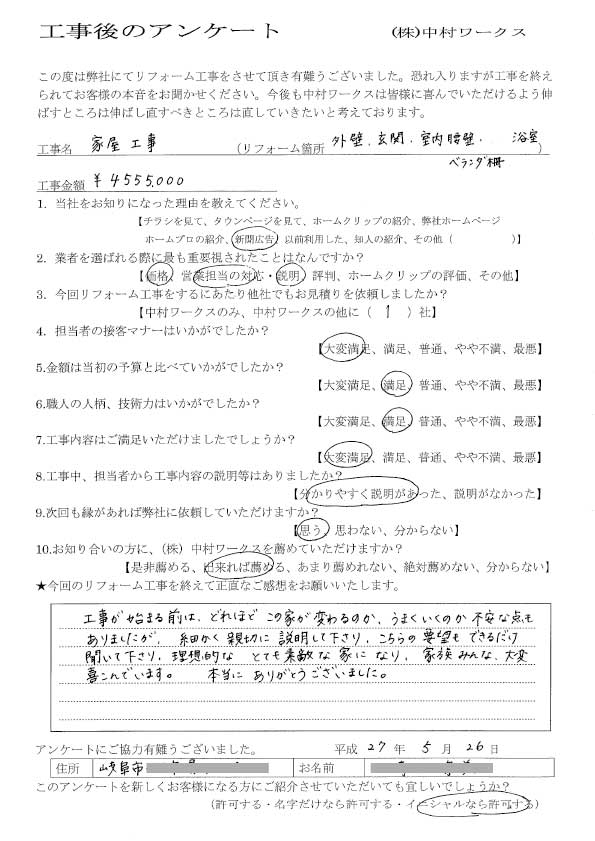 工事後のアンケート (株)中村ワークス
この度は弊社にてリフォーム工事をさせて頂き有難うございました。恐れ入りますが工事を終え
られてお客様の本音をお聞かせください。今後も中村ワークスは皆様に喜んでいただけるよう伸
ばすところは伸ばし直すべきところは直していきたいと考えております。
工事名 家屋工事 (リフォーム箇所 外壁、玄関、室内腰壁、浴室)
ベランダ柵
工事金額 ¥4555,000
1. 当社をお知りになった理由を教えてください。
【チラシを見て、タウンページを見て、ホームクリップの紹介、弊社ホームページ
ホームプロの紹介、新聞広告、以前利用した、知人の紹介、その他（ ）】
2. 業者を選ばれる際に最も重要視されたことはなんですか？
【価格、営業担当の対応・説明、評判、ホームクリップの評価、その他】
3. 今回リフォーム工事をするにあたり他社でもお見積りを依頼しましたか？
【中村ワークスのみ、中村ワークスの他に（ 1 ）社】
4. 担当者の接客マナーはいかがでしたか？
【大変満足、満足、普通、やや不満、最悪】
5.金額は当初の予算と比べていかがでしたか？
【大変満足、満足、普通、やや不満、最悪】
6.職人の人柄、技術力はいかがでしたか？
【大変満足、満足、普通、やや不満、最悪】
7.工事内容はご満足いただけましたでしょうか？
【大変満足、満足、普通、やや不満、最悪】
8.工事中、担当者から工事内容の説明等はありましたか？
【分かりやすく説明があった、説明がなかった】
9.次回も縁があれば弊社に依頼していただけますか？
【思う、思わない、分からない】
10.お知り合いの方に、(株) 中村ワークスを薦めていただけますか？
【是非薦める、出来れば薦める、あまり薦めれない、絶対薦めない、分からない】
★今回のリフォーム工事を終えて正直なご感想をお願いいたします。
工事が始まる前は、どれほどこの家が変わるのか、うまくいくのか不安な点も
ありましたが、細かく親切に説明して下さり、こちらの要望もできるだけ
聞いて下さり、理想的な とても素敵な家になり、家族みんな、大変
喜こんでいます。 本当にありがとうございました。
アンケートにご協力有難うございました。 平成 27 年 5 月 26 日
住所 岐阜市 お名前
このアンケートを新しくお客様になる方にご紹介させていただいても宜しいでしょうか？
(許可する・名字だけなら許可する・イニシャルなら許可する)